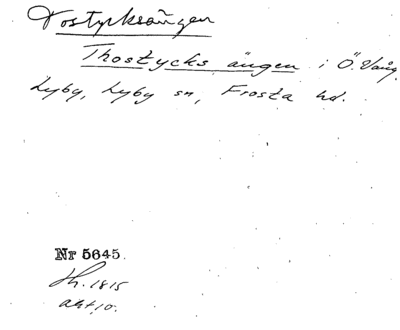 Tostycksängen
Thostycks ängen i Ö. Vång,
Lyby, Lyby sn, Frosta hd.
Nr 5645.
Sh. 1815
akt 10.